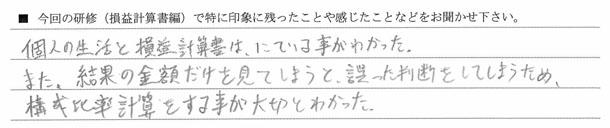 ■ 今回の研修（損益計算書編）で特に印象に残ったことや感じたことなどをお聞かせ下さい。
個人の生活と損益計算書は、にている事がわかった。
また、結果の金額だけを見てしまうと、誤った判断をしてしまうため、
構成比率計算をする事が大切とわかった。